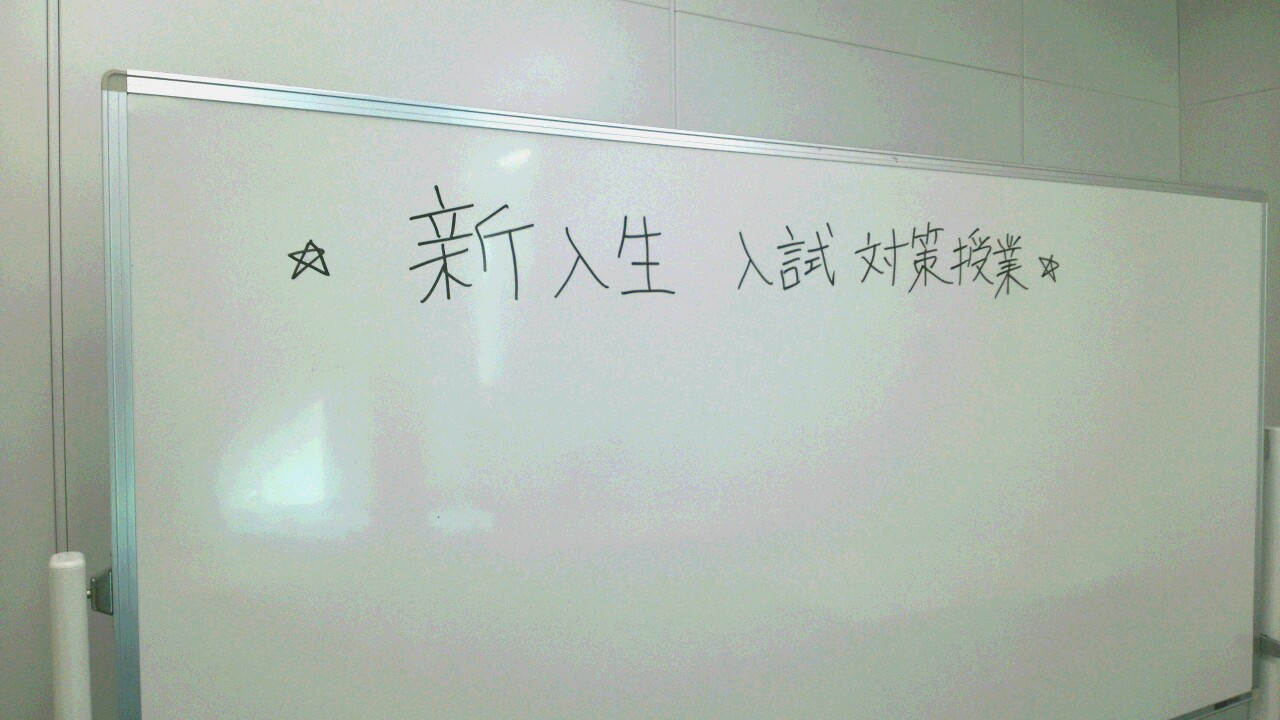 ☆ 新入生 入試対策授業☆